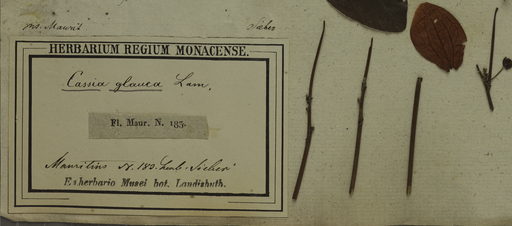 ins. Maurit. Sieber
HERBARIUM REGIUM MONACENSE.
Cassia glauca Lam.
Fl. Maur. N. 183.
Mauritius N. 183. herb. Sieber
Ex herbario Musei bot. Landishuth.